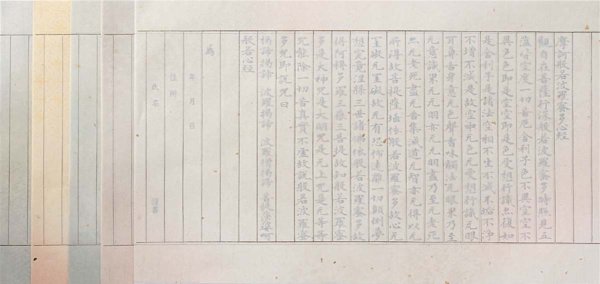 摩訶般若波羅蜜多心経
觀自在菩薩行深般若波羅蜜多時照見五
蘊皆空度一切苦厄舎利子色不異空空不
異色色即是空空即是色受想行識亦復如
是舎利子是諸法空相不生不滅不垢不浄
不増不減是故空中无色无受想行識无眼
耳鼻舌身意无色聲香味觸法无眼界乃至
无意識界无无明亦无无明盡乃至无老死
亦无老死盡无苦集滅道无智亦无得以无
所得故菩提薩埵依般若波羅蜜多故心无
罣礙无罣礙故无有恐怖遠離一切顛倒夢
想究竟涅槃三世諸佛依般若波羅蜜多故
得阿耨多羅三藐三菩提故知般若波羅蜜
多是大神咒是大明咒是无上咒是无等等
咒能除一切苦真實不虚故説般若波羅蜜
多咒即説咒曰
揭諦揭諦 波羅揭諦 波羅僧揭諦 菩提薩婆訶
般若心経
為
年 月 日
住所
氏名